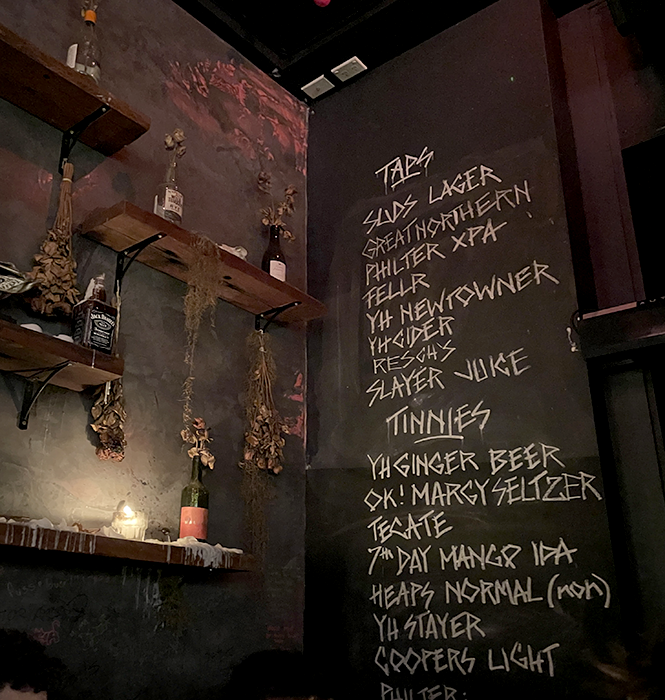 TAPS
SUDS LAGER
GREAT NORTHERN
PHILTER XPA
FELLR
YH NEWTOWNER
YH CIDER
RESCH'S
SLAYER JUICE
TINNIES
YH GINGER BEER
OK! MARGY SELTZER
TECATE
7TH DAY MANGO IPA
HEAPS NORMAL (non)
YH STAYER
COOPERS LIGHT
PHILTER:
JACK DANIEL'S